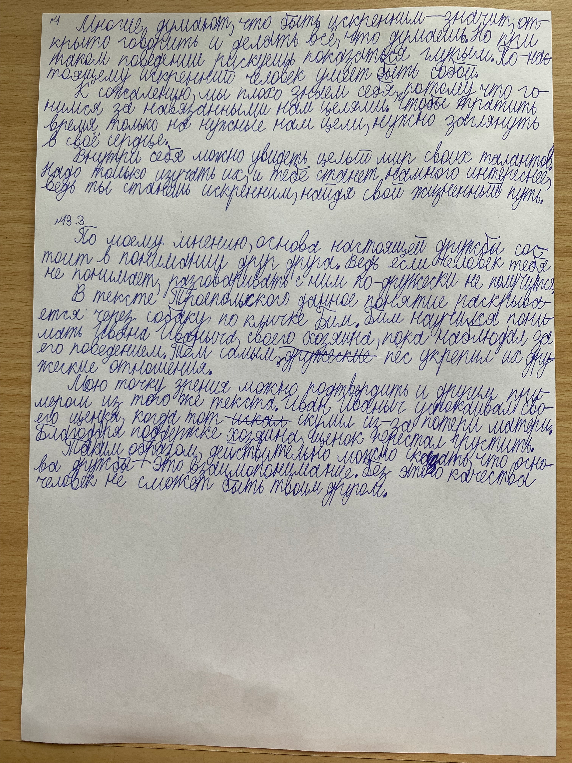 №1
Многие думают, что быть искренним — значит, от-
крыто говорить и делать всё, что думаешь. Но при
таком поведении рискуешь показаться глупым. По-нас-
тоящему искренний человек умеет быть собой.
К сожалению, мы плохо знаем себя, потому что го-
нимся за навязанными нам целями. Чтобы тратить
время только на нужные нам цели, нужно заглянуть
в своё сердце.
Внутри себя можно увидеть целый мир своих талантов.
Надо только изучать их, и тебе станет намного интереснее,
ведь ты станешь искренним, найдя свой жизненный путь.
№13.3
По моему мнению, основа настоящей дружбы сос-
тоит в понимании друг друга. Ведь если человек тебя
не понимает, разговаривать с ним по-дружески не получится.
В тексте Троепольского данное понятие раскрыва-
ется через собаку по кличке Бим. Бим научился пони-
мать Ивана Иваныча, своего хозяина, пока наблюдал за
его поведением. Тем самым дружеские пёс укрепил их дру-
жеские отношения.
Мою точку зрения можно подтвердить и другим при-
мером из того же текста. Иван Иваныч успокаивал сво-
его щенка, когда тот скулил из-за потери матери.
Благодаря поддержке хозяина, щенок перестал грустить.
Таким образом, действительно можно сказать, что осно-
ва дружбы — это взаимопонимание. Без этого качества
человек не сможет быть твоим другом.